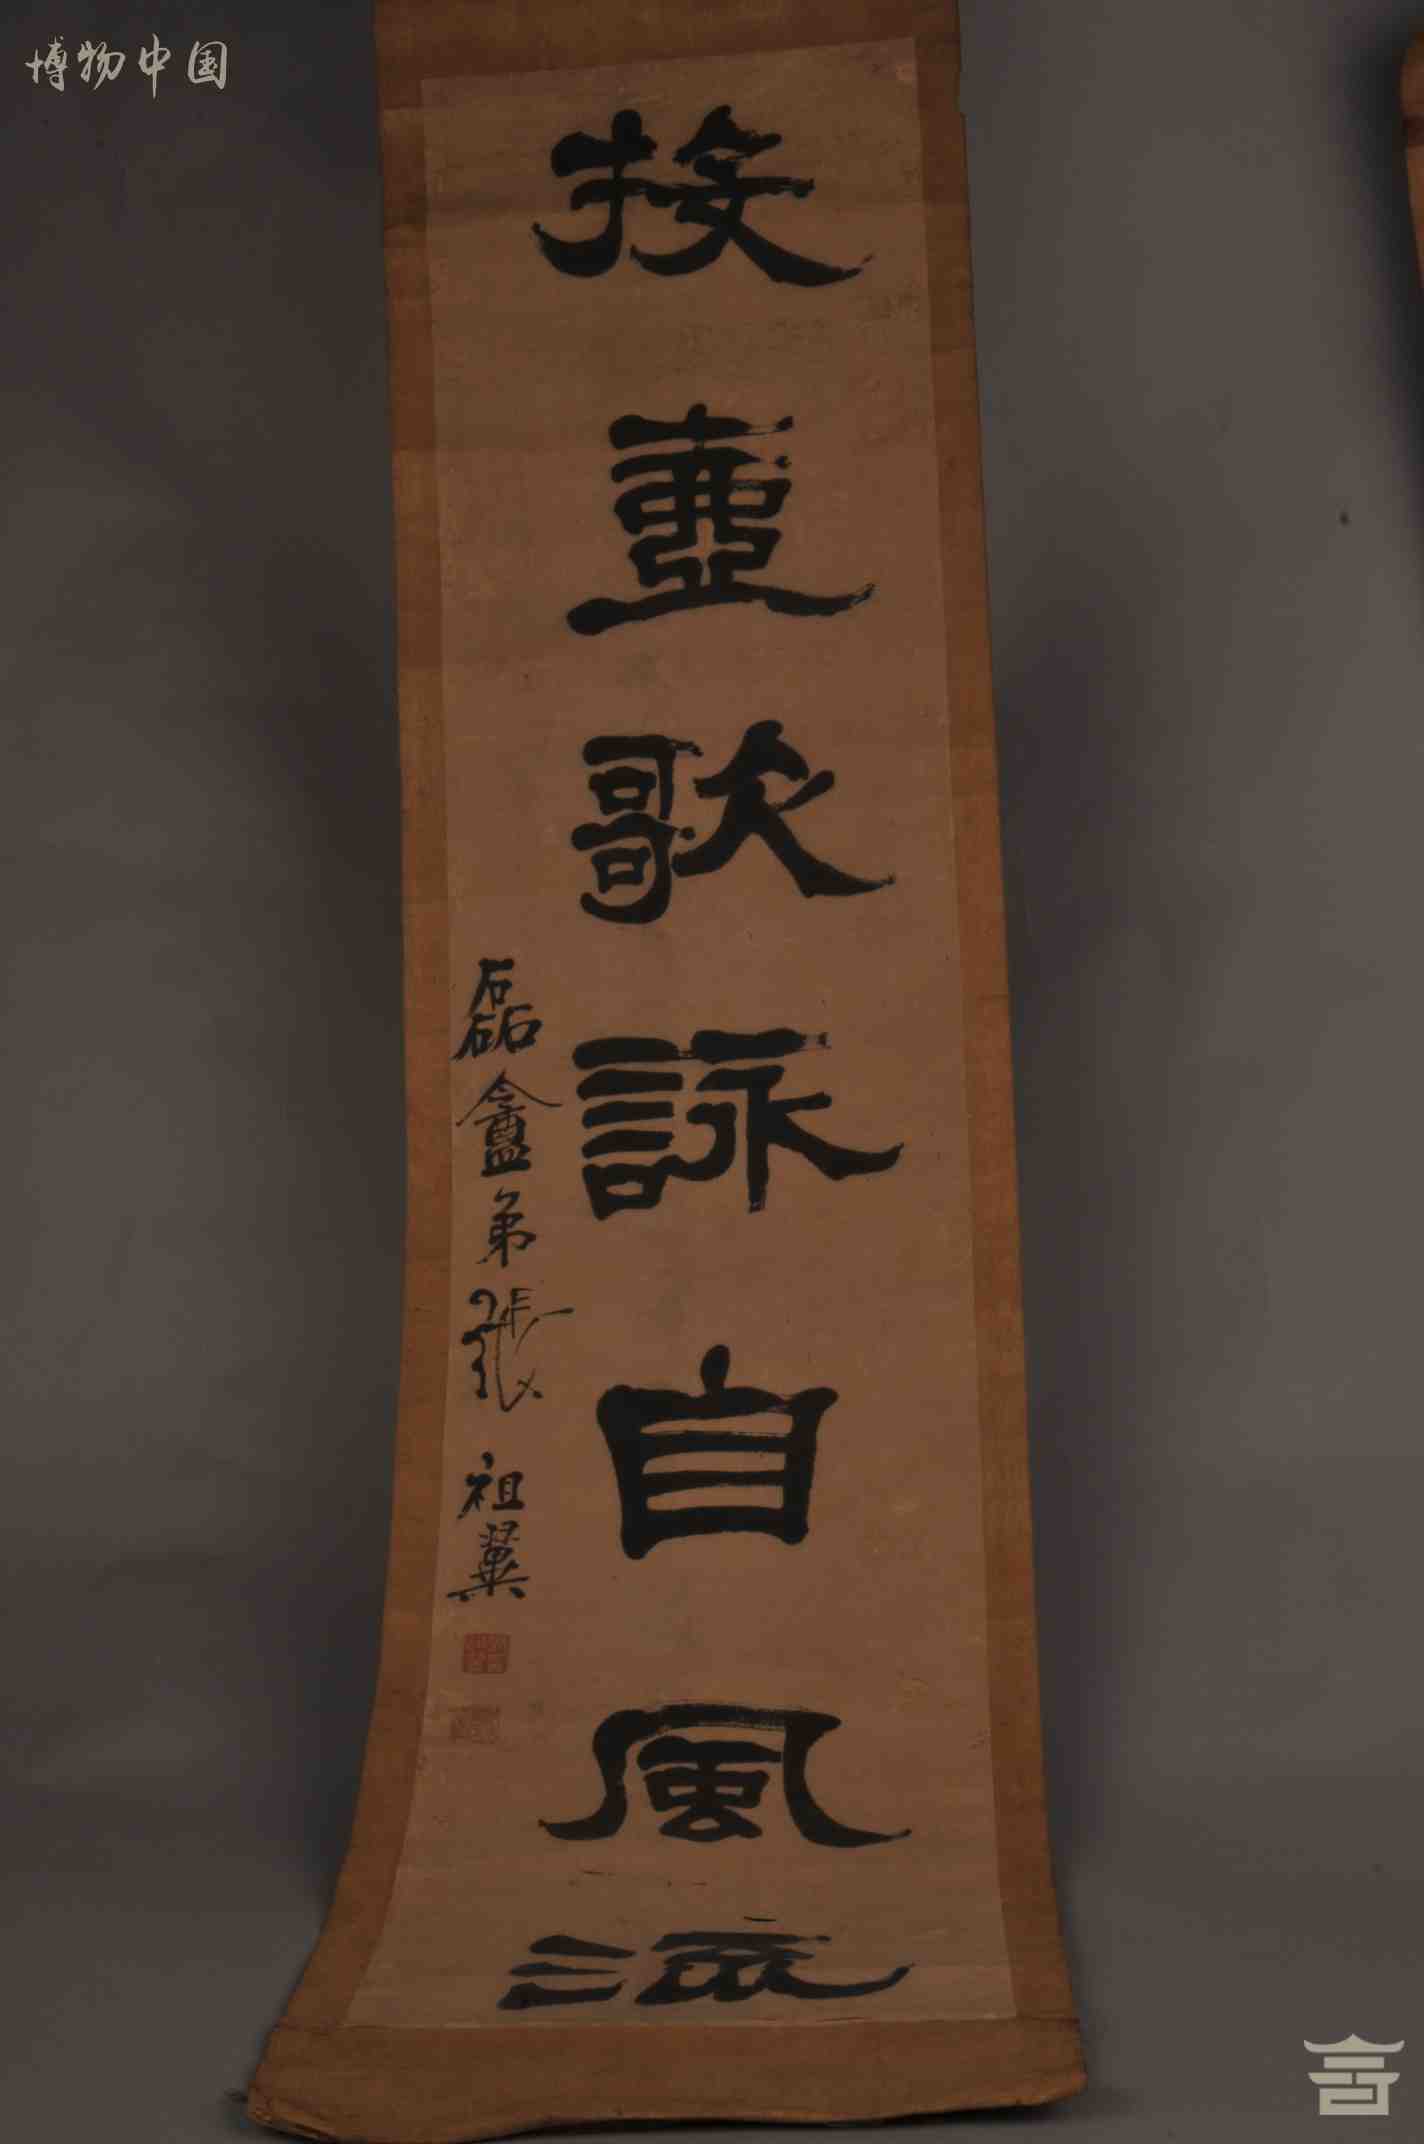 博物中国
投壺歌詠自風流
磊盦弟張祖翼